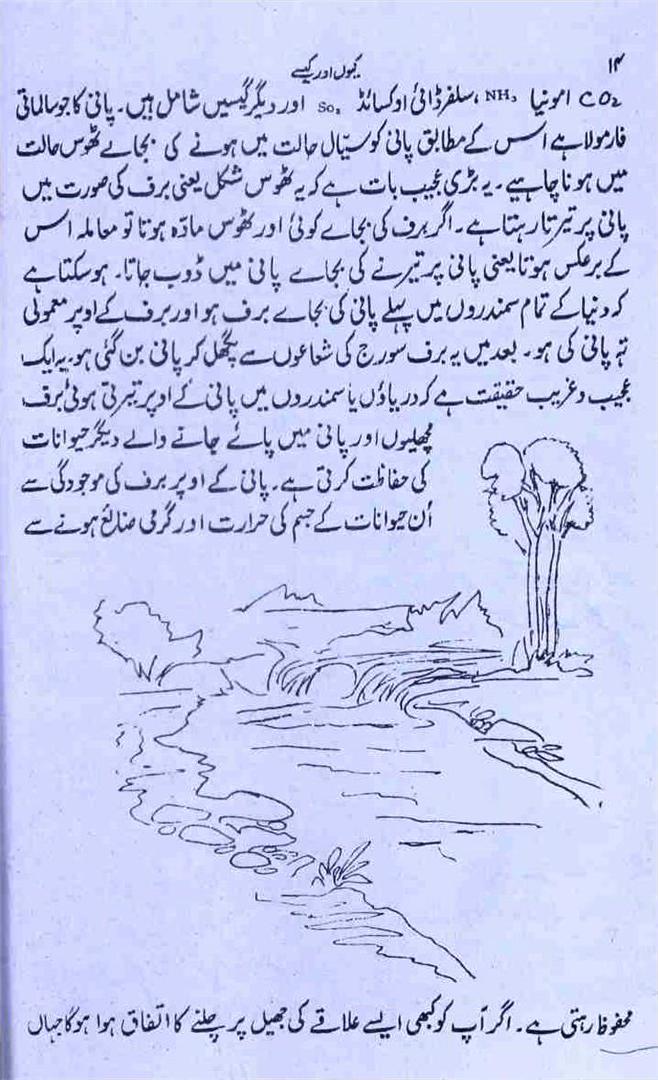 ۱۴
کیوں اور کیسے
CO₂ امونیا NH₃، سلفر ڈائی اوکسائڈ So₂ اور دیگر گیسیں شامل ہیں۔ پانی کا جو سالماتی
فارمولا ہے اس کے مطابق پانی کو سیّال حالت میں ہونے کی بجائے ٹھوس حالت
میں ہونا چاہیے۔ یہ بڑی عجیب بات ہے کہ یہ ٹھوس شکل یعنی برف کی صورت میں
پانی پر تیرتا رہتا ہے۔ اگر برف کی بجائے کوئی اور ٹھوس مادّہ ہوتا تو معاملہ اس
کے برعکس ہوتا یعنی پانی پر تیرنے کی بجائے پانی میں ڈوب جاتا۔ ہو سکتا ہے
کہ دنیا کے تمام سمندروں میں پہلے پانی کی بجائے برف ہو اور برف کے اوپر معمولی
تہہ پانی کی ہو۔ بعد میں یہ برف سورج کی شعاعوں سے پگھل کر پانی بن گئی ہو۔ یہ ایک
عجیب و غریب حقیقت ہے کہ دریاؤں یا سمندروں میں پانی کے اوپر تیرتی ہوئی برف
مچھلیوں اور پانی میں پائے جانے والے دیگر حیوانات
کی حفاظت کرتی ہے۔ پانی کے اوپر برف کی موجودگی سے
اُن حیوانات کے جسم کی حرارت اور گرمی ضائع ہونے سے
محفوظ رہتی ہے۔ اگر آپ کو کبھی ایسے علاقے کی جھیل پر چلنے کا اتفاق ہوا ہوگا جہاں